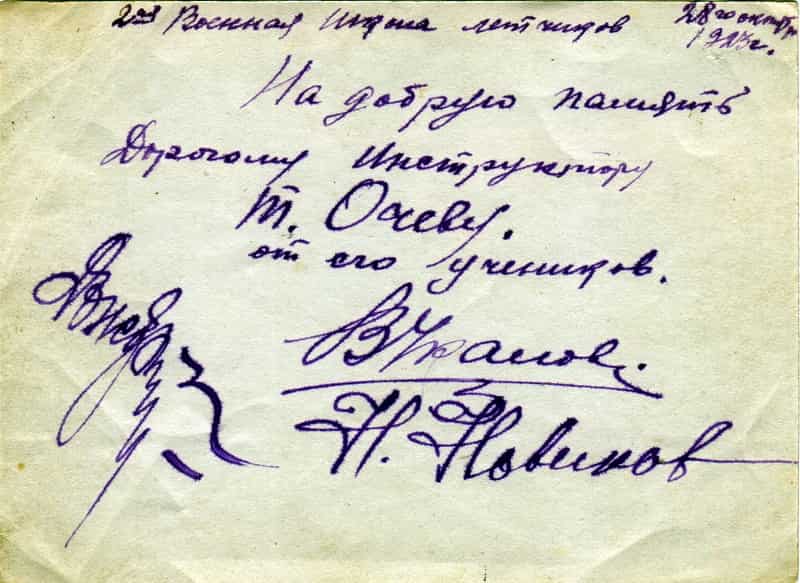 2ая Военная Школа летчиков 28го октября
1923г.
На добрую память
Дорогому Инструктору
т. Очеву.
от его учеников.
В
Н. Новиков